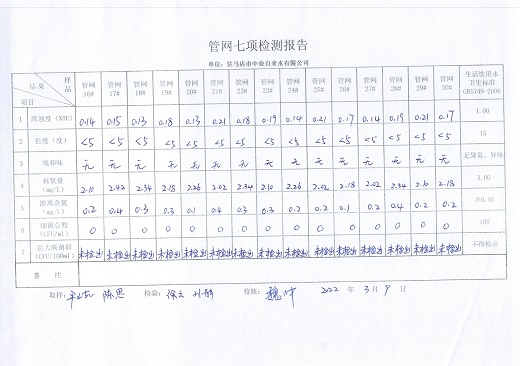 管网七项检测报告
单位：驻马店市中业自来水有限公司
结果 样品 项目 管网16# 管网17# 管网18# 管网19# 管网20# 管网21# 管网22# 管网23# 管网24# 管网25# 管网26# 管网27# 管网28# 管网29# 管网30# 生活饮用水卫生标准GB5749-2006
1 浑浊度（NTU） 0.14 0.15 0.13 0.18 0.13 0.21 0.18 0.19 0.14 0.21 0.17 0.14 0.19 0.21 0.17 1.00
2 色度（度） <5 <5 <5 <5 <5 <5 <5 <5 <5 <5 <5 <5 <5 <5 <5 15
3 嗅和味 无 无 无 无 无 无 无 无 无 无 无 无 无 无 无 无异臭、异味
4 耗氧量（mg/L） 2.10 2.42 2.34 2.18 2.26 2.02 2.34 2.10 2.26 2.02 2.18 2.02 2.34 2.10 2.18 3.00
5 游离余氯（mg/L） 0.2 0.4 0.3 0.3 0.1 0.4 0.3 0.3 0.2 0.2 0.1 0.2 0.4 0.2 0.2 ≥0.05
6 细菌总数（CFU/ml） 0 0 0 0 0 0 0 0 0 0 0 0 0 0 0 100
7 总大肠菌群（CFU/100ml） 未检出 未检出 未检出 未检出 未检出 未检出 未检出 未检出 未检出 未检出 未检出 未检出 未检出 未检出 未检出 不得检出
备 注
取样： 陈思 检验： 徐云 孙静 校核： 2022 年 3 月 9 日